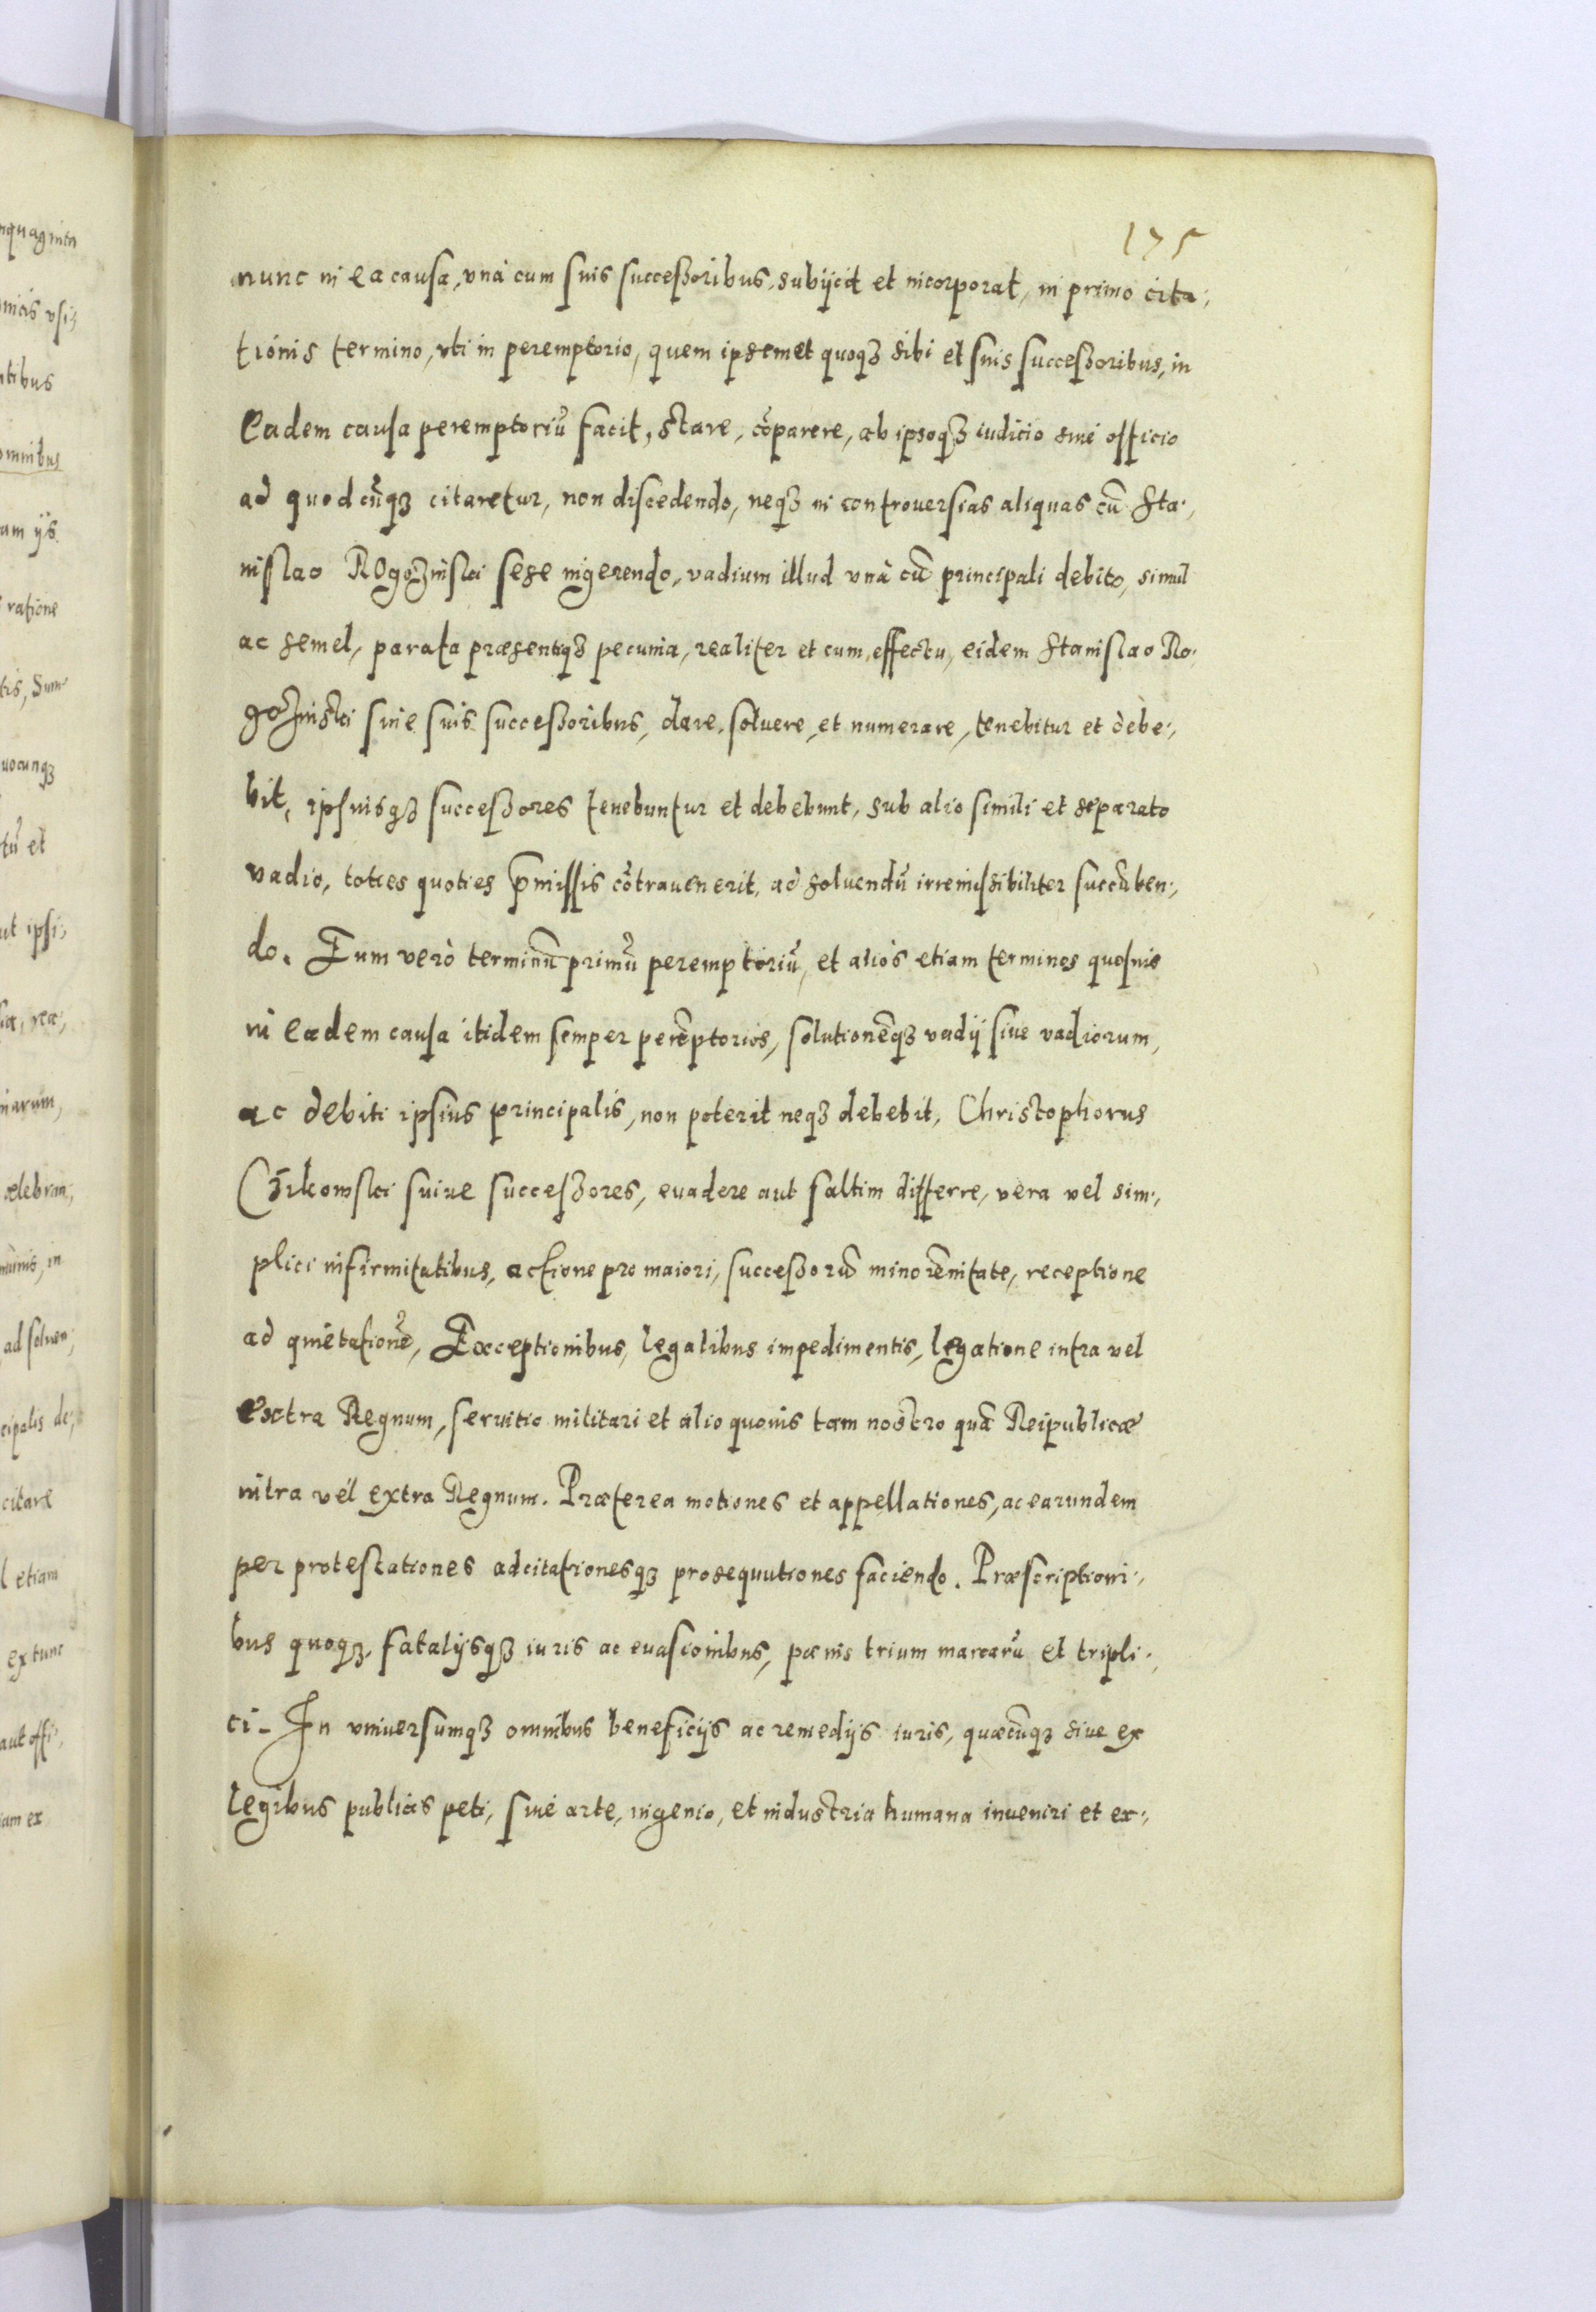 175
nunc in ea causa, vnà cum suis successoribus, subijcit et incorporat, in primo cita,
tionis termino, vti in peremptorio, quem ipsemet quoqꝫ sibi et suis successoribus, in
Eadem causa peremptoriũ facit, stare, cõparere, ab ipsoqꝫ iudicio siue officio
ad quodcũqꝫ citaretur, non discedendo, neqꝫ in controuersias aliquas cũ Sta,
nislao Rogozinski sese ingerendo, vadium illud vnà cũ principali debito, simul
ac semel, parata præsentiqꝫ pecunia, realiter et cum effectu, eidem Stanislao Ro,
gozinski siue suis successoribus, dare, soluere, et numerare, tenebitur et debe,
bit, ipsiusqꝫ successores tenebuntur et debebunt, sub alio simili et separato
vadio, toties quoties p̄missis cõtrauenerit, ad soluendũ irremissibiliter succũben,
do. Eum verò terminũ primũ peremptoriũ, et aliòs etiam terminos quosuis
in eadem causa itidem semper perẽptorios, solutionẽqꝫ vadij siue vadiorum,
ac debiti ipsius principalis, non poterit neqꝫ debebit, Christophorus
Czikowski suiue successores, euadere aut saltim differre, vera vel sim,
plici infirmitatibus, actione pro maiori, successorũ minorẽnitate, receptione
ad quietationẽ, Exceptionibus, legalibus impedimentis, legatione intra vel
extra Regnum, seruitio militari et alio quouis tam nostro quã Reipublicæ
intra vel extra Regnum. Præterea motiones et appellationes, ac earundem
per protestationes adcitationesqꝫ prosequutiones faciendo. Præscriptioni,
bus quoqꝫ, fatalijsqꝫ iuris ac euasionibus, pœnis trium marcarũ et tripli,
ci. In vniuersumqꝫ omnibus beneficijs ac remedijs iuris, quæcũqꝫ siue ex
legibus publicis peti, siue arte, ingenio, et industria humana inueniri et ex,